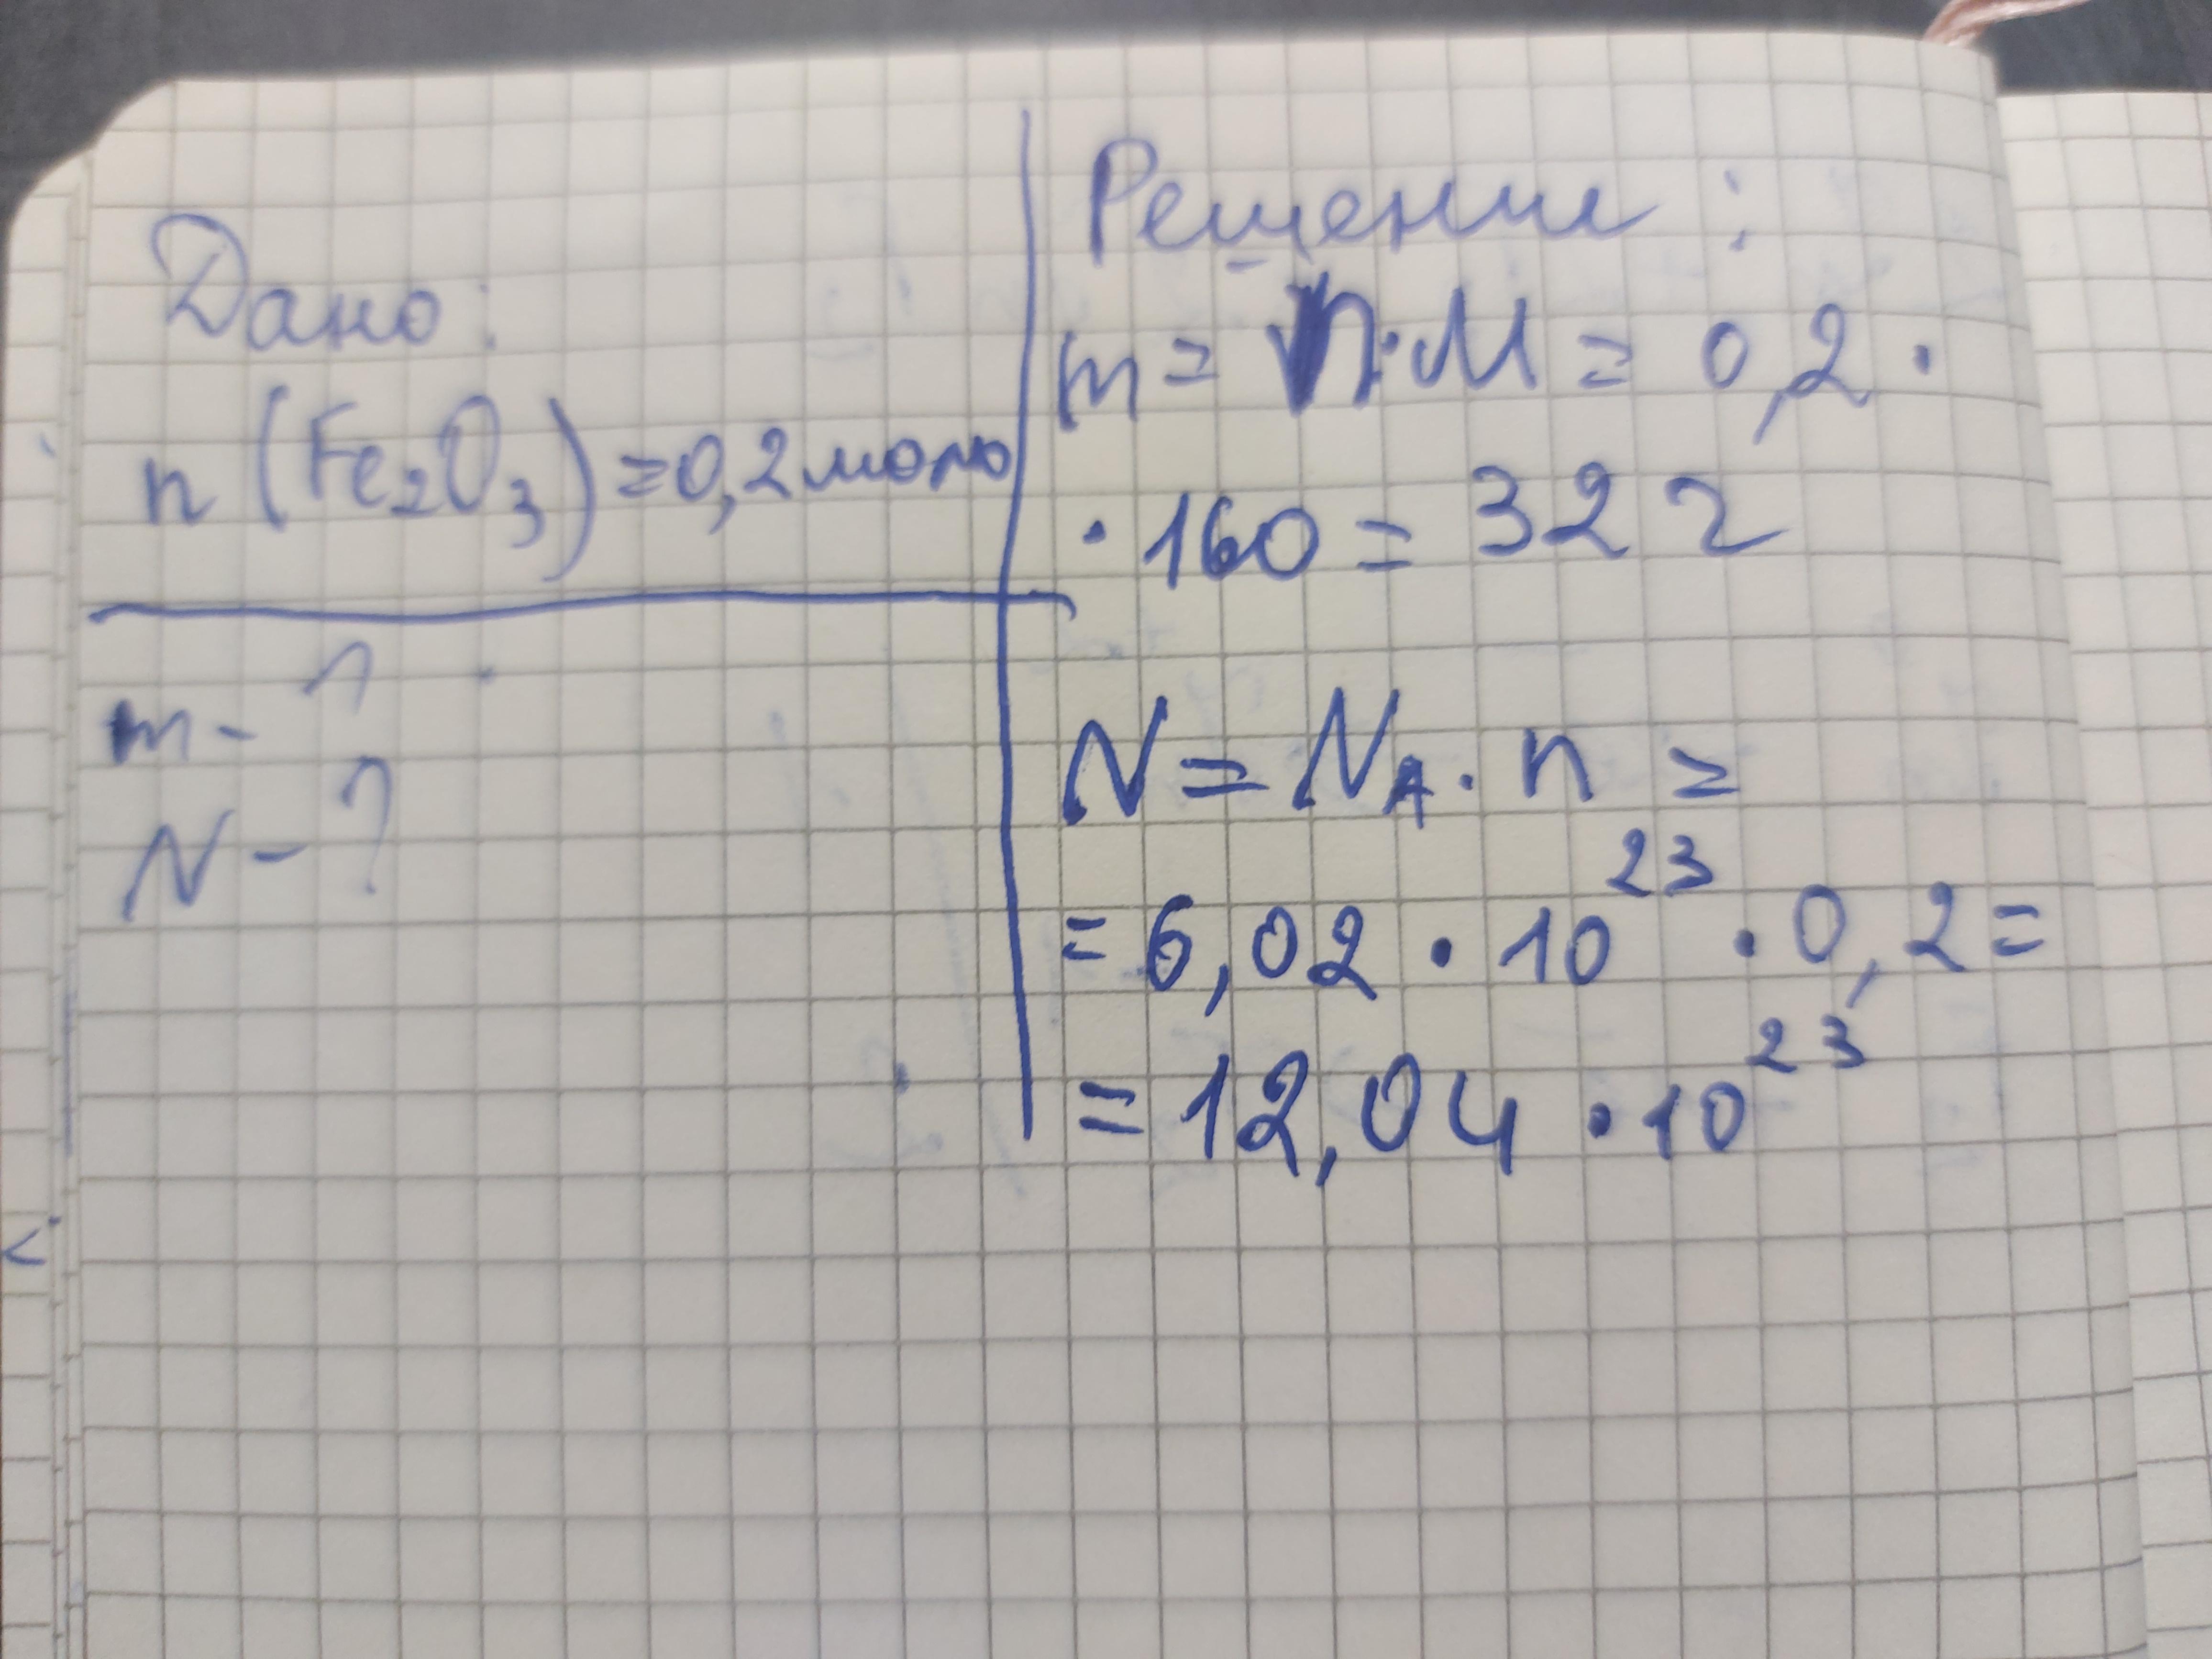 Дано:
n (Fe₂O₃) = 0,2 моль
m - ?
N - ?
Решение:
m = n · M = 0,2 ·
· 160 = 32 г
N = N_A · n =
= 6,02 · 10²³ · 0,2 =
= 12,04 · 10²³